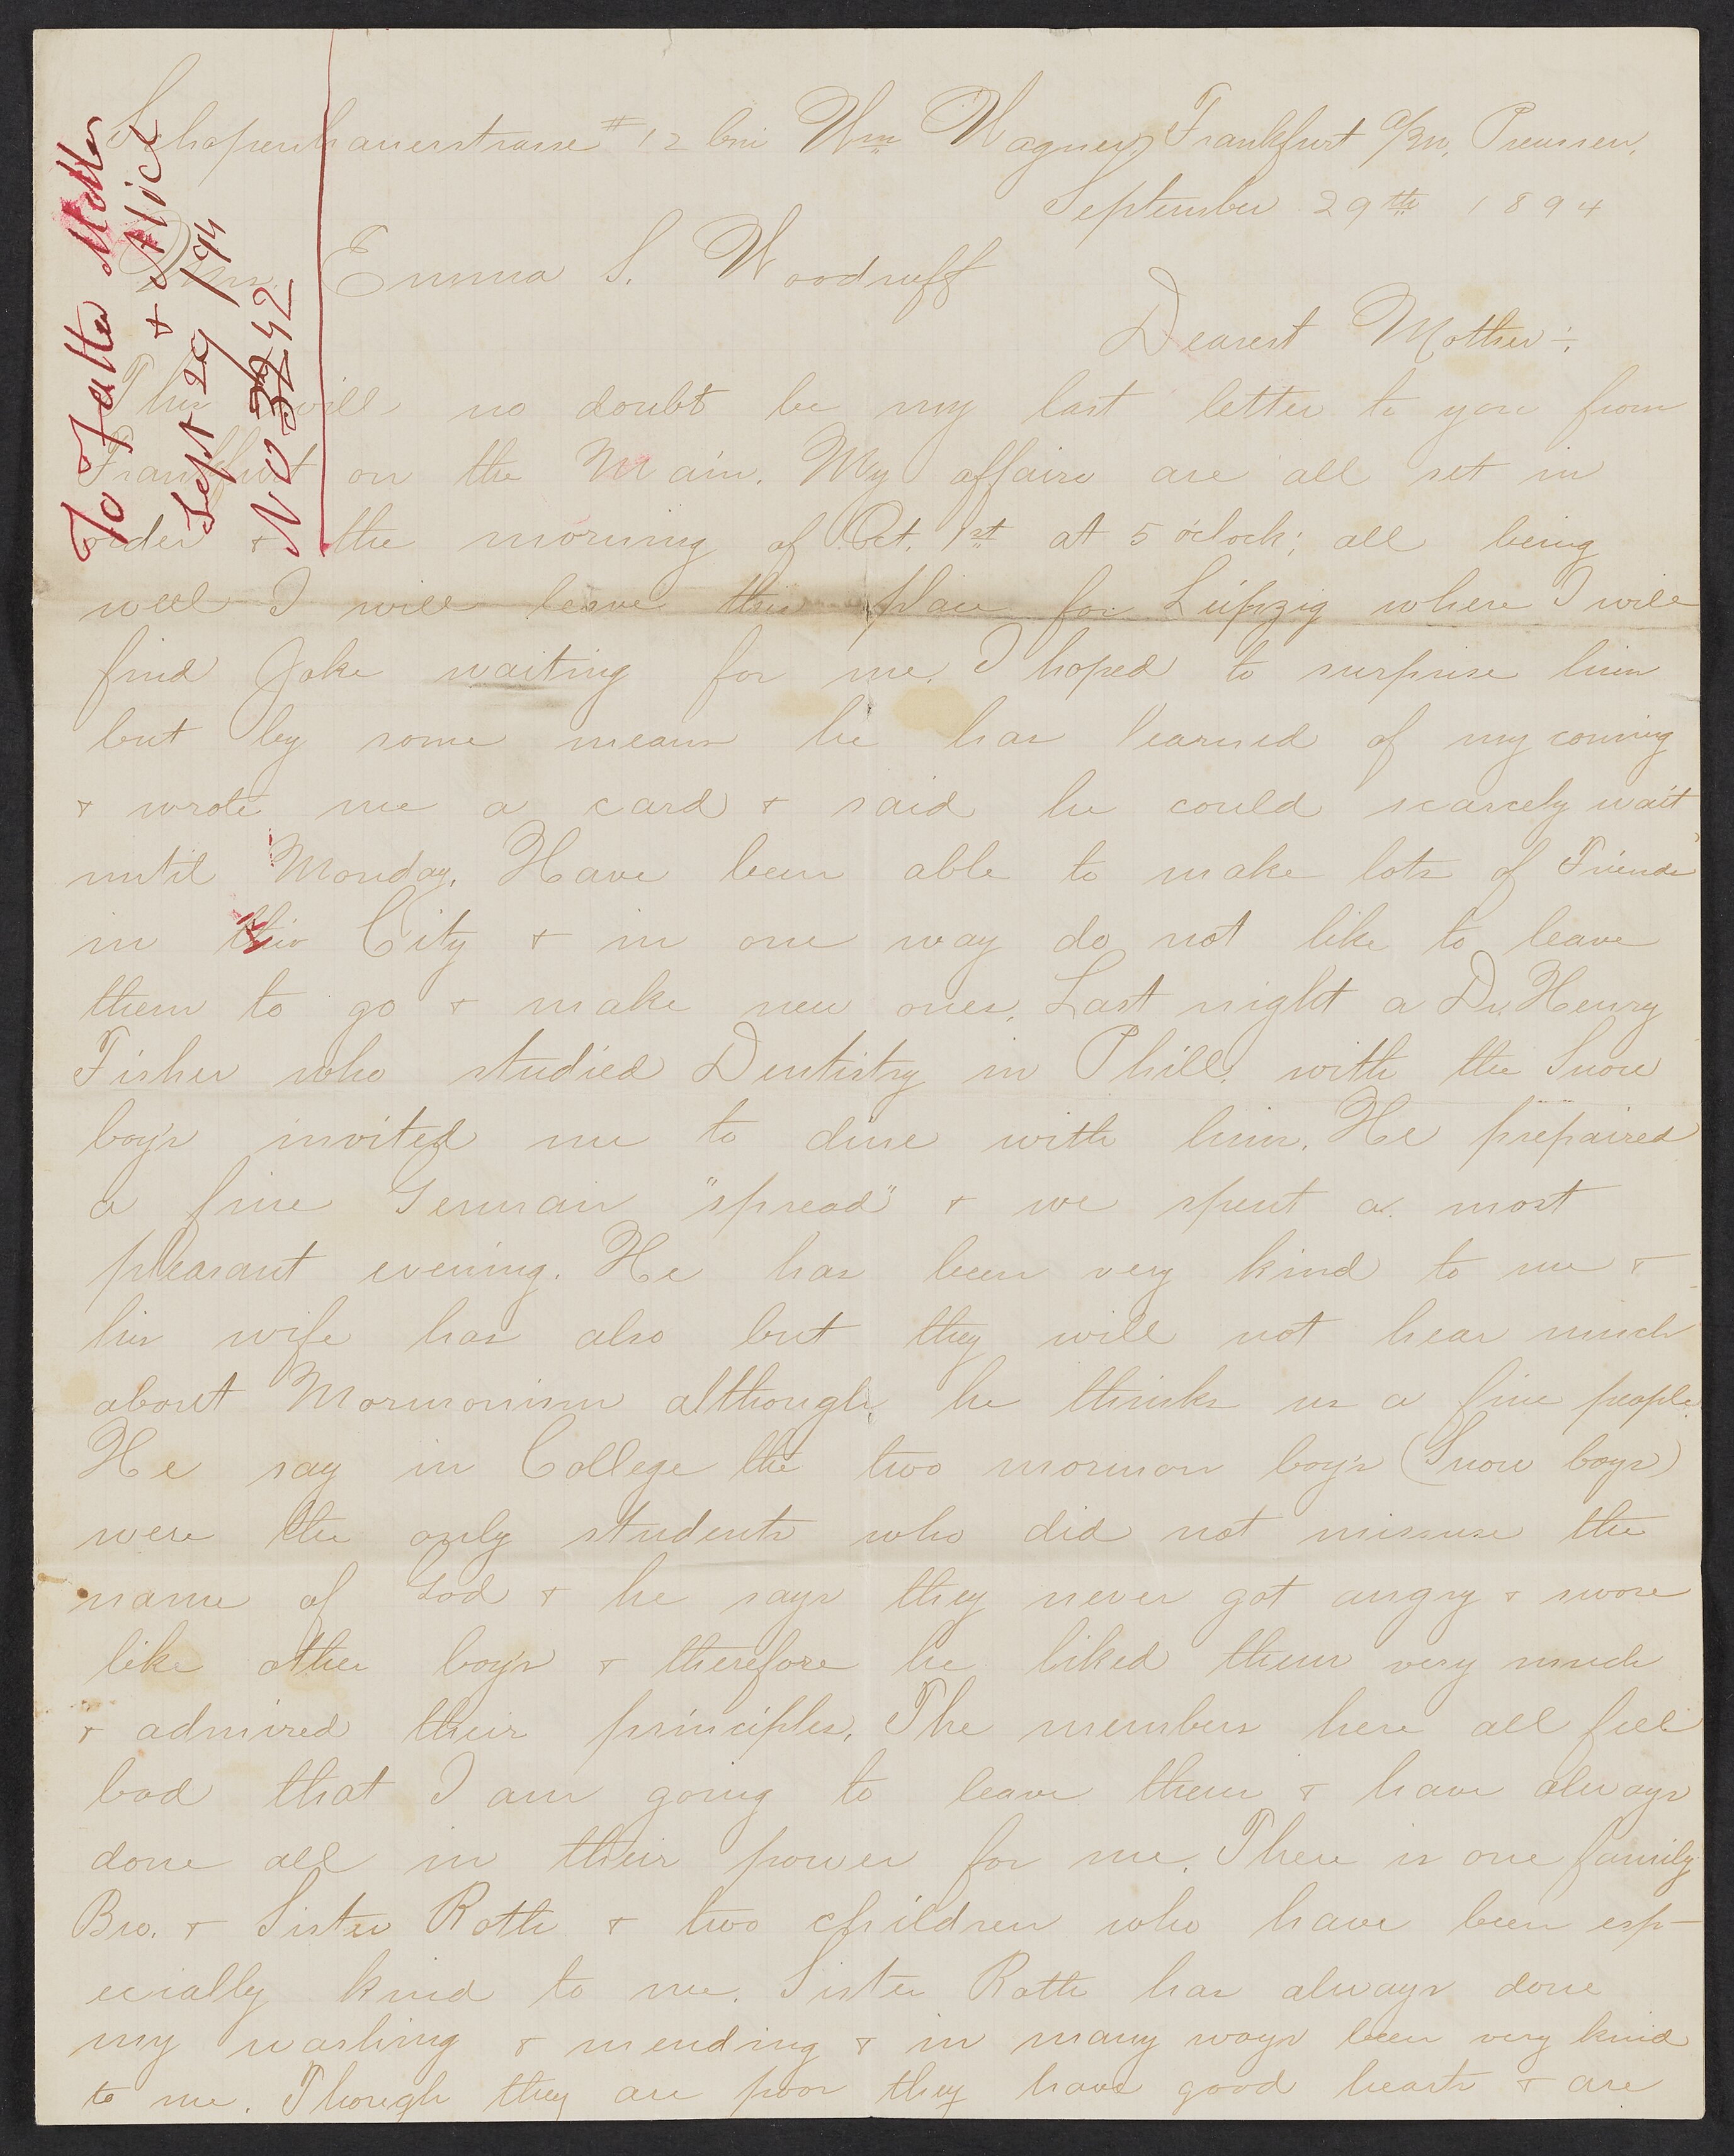 To Father Mother
& Alice
Sept 29/94
No 3242
Schopenhauerstrasse #12 bei Wm Wagner, Frankfurt a/M. Preussen.
September 29th 1894
Mrs. Emma S. Woodruff
Dearest Mother:-
This will no doubt be my last letter to you from
Frankfurt on the Main. My affairs are all set in
order & the morning of Oct. 1st at 5 o'clock; all being
well I will leave this place for Leipzig where I will
find Jake waiting for me. I hoped to surprise him
but by some means he has learned of my coming
& wrote me a card & said he could scarcely wait
until Monday. Have been able to make lots of Friends
in this City & in one way do not like to leave
them to go & make new ones. Last night a Dr. Henry
Fisher who studied Dentistry in Phill. with the Snow
boy's invited me to dine with him. He prepaired
a fine German "spread" & we spent a most
pleasant evening. He has been very kind to me &
his wife has also but they will not hear much
about Mormonism although he thinks us a fine people.
He say in College the two mormon boy's (Snow boys)
were the only students who did not missuse the
name of God & he says they never got angry & swore
like other boy's & therefore he liked them very much
& admired their principles. The members here all feel
bad that I am going to leave them & have always
done all in their power for me. There is one family
Bro. & Sister Roth & two children who have been esp-
ecially kind to me. Sister Roth has always done
my washing & mending & in many ways been very kind
to me. Though they are poor they have good hearts & are